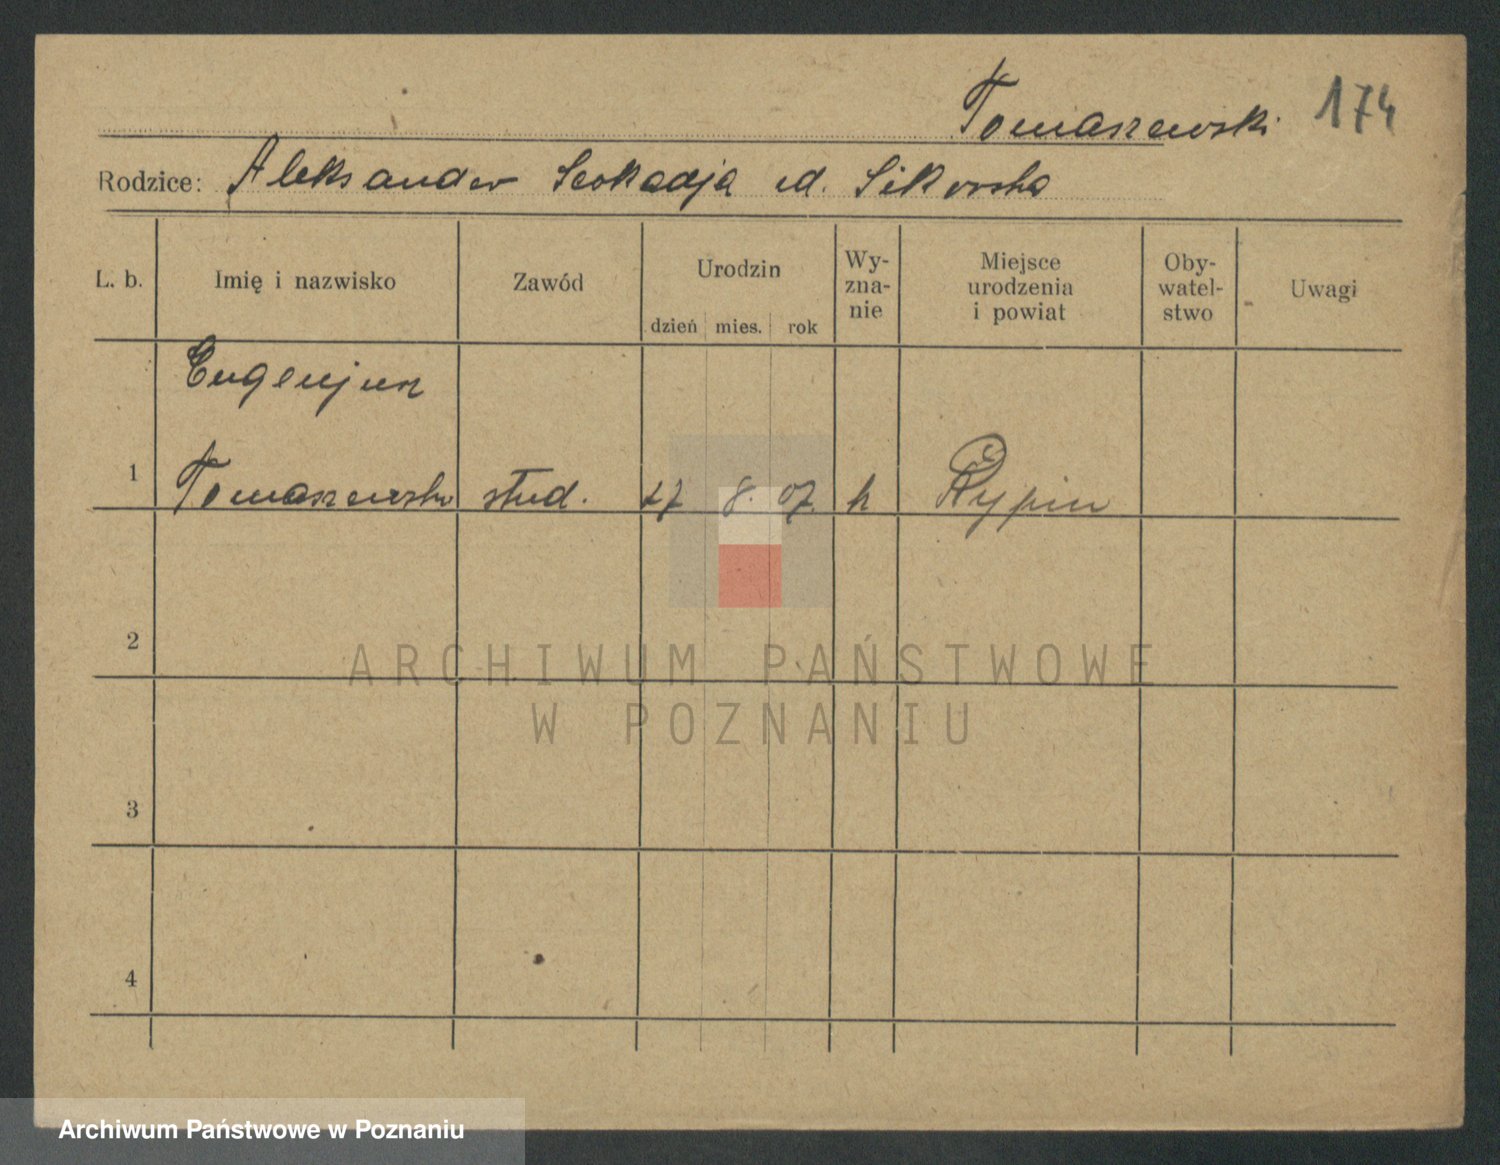 Tomaszewski 174
Rodzice: Aleksander Leokadja zd. Sikorska
L. b. Imię i nazwisko Zawód Urodzin dzień mies. rok Wy-zna-nie Miejsce urodzenia i powiat Oby-watel-stwo Uwagi
Eugenjusz
1 Tomaszewski stud. 17 8. 07. k Rypin
2
3
4
ARCHIWUM PAŃSTWOWE
W POZNANIU
Archiwum Państwowe w Poznaniu